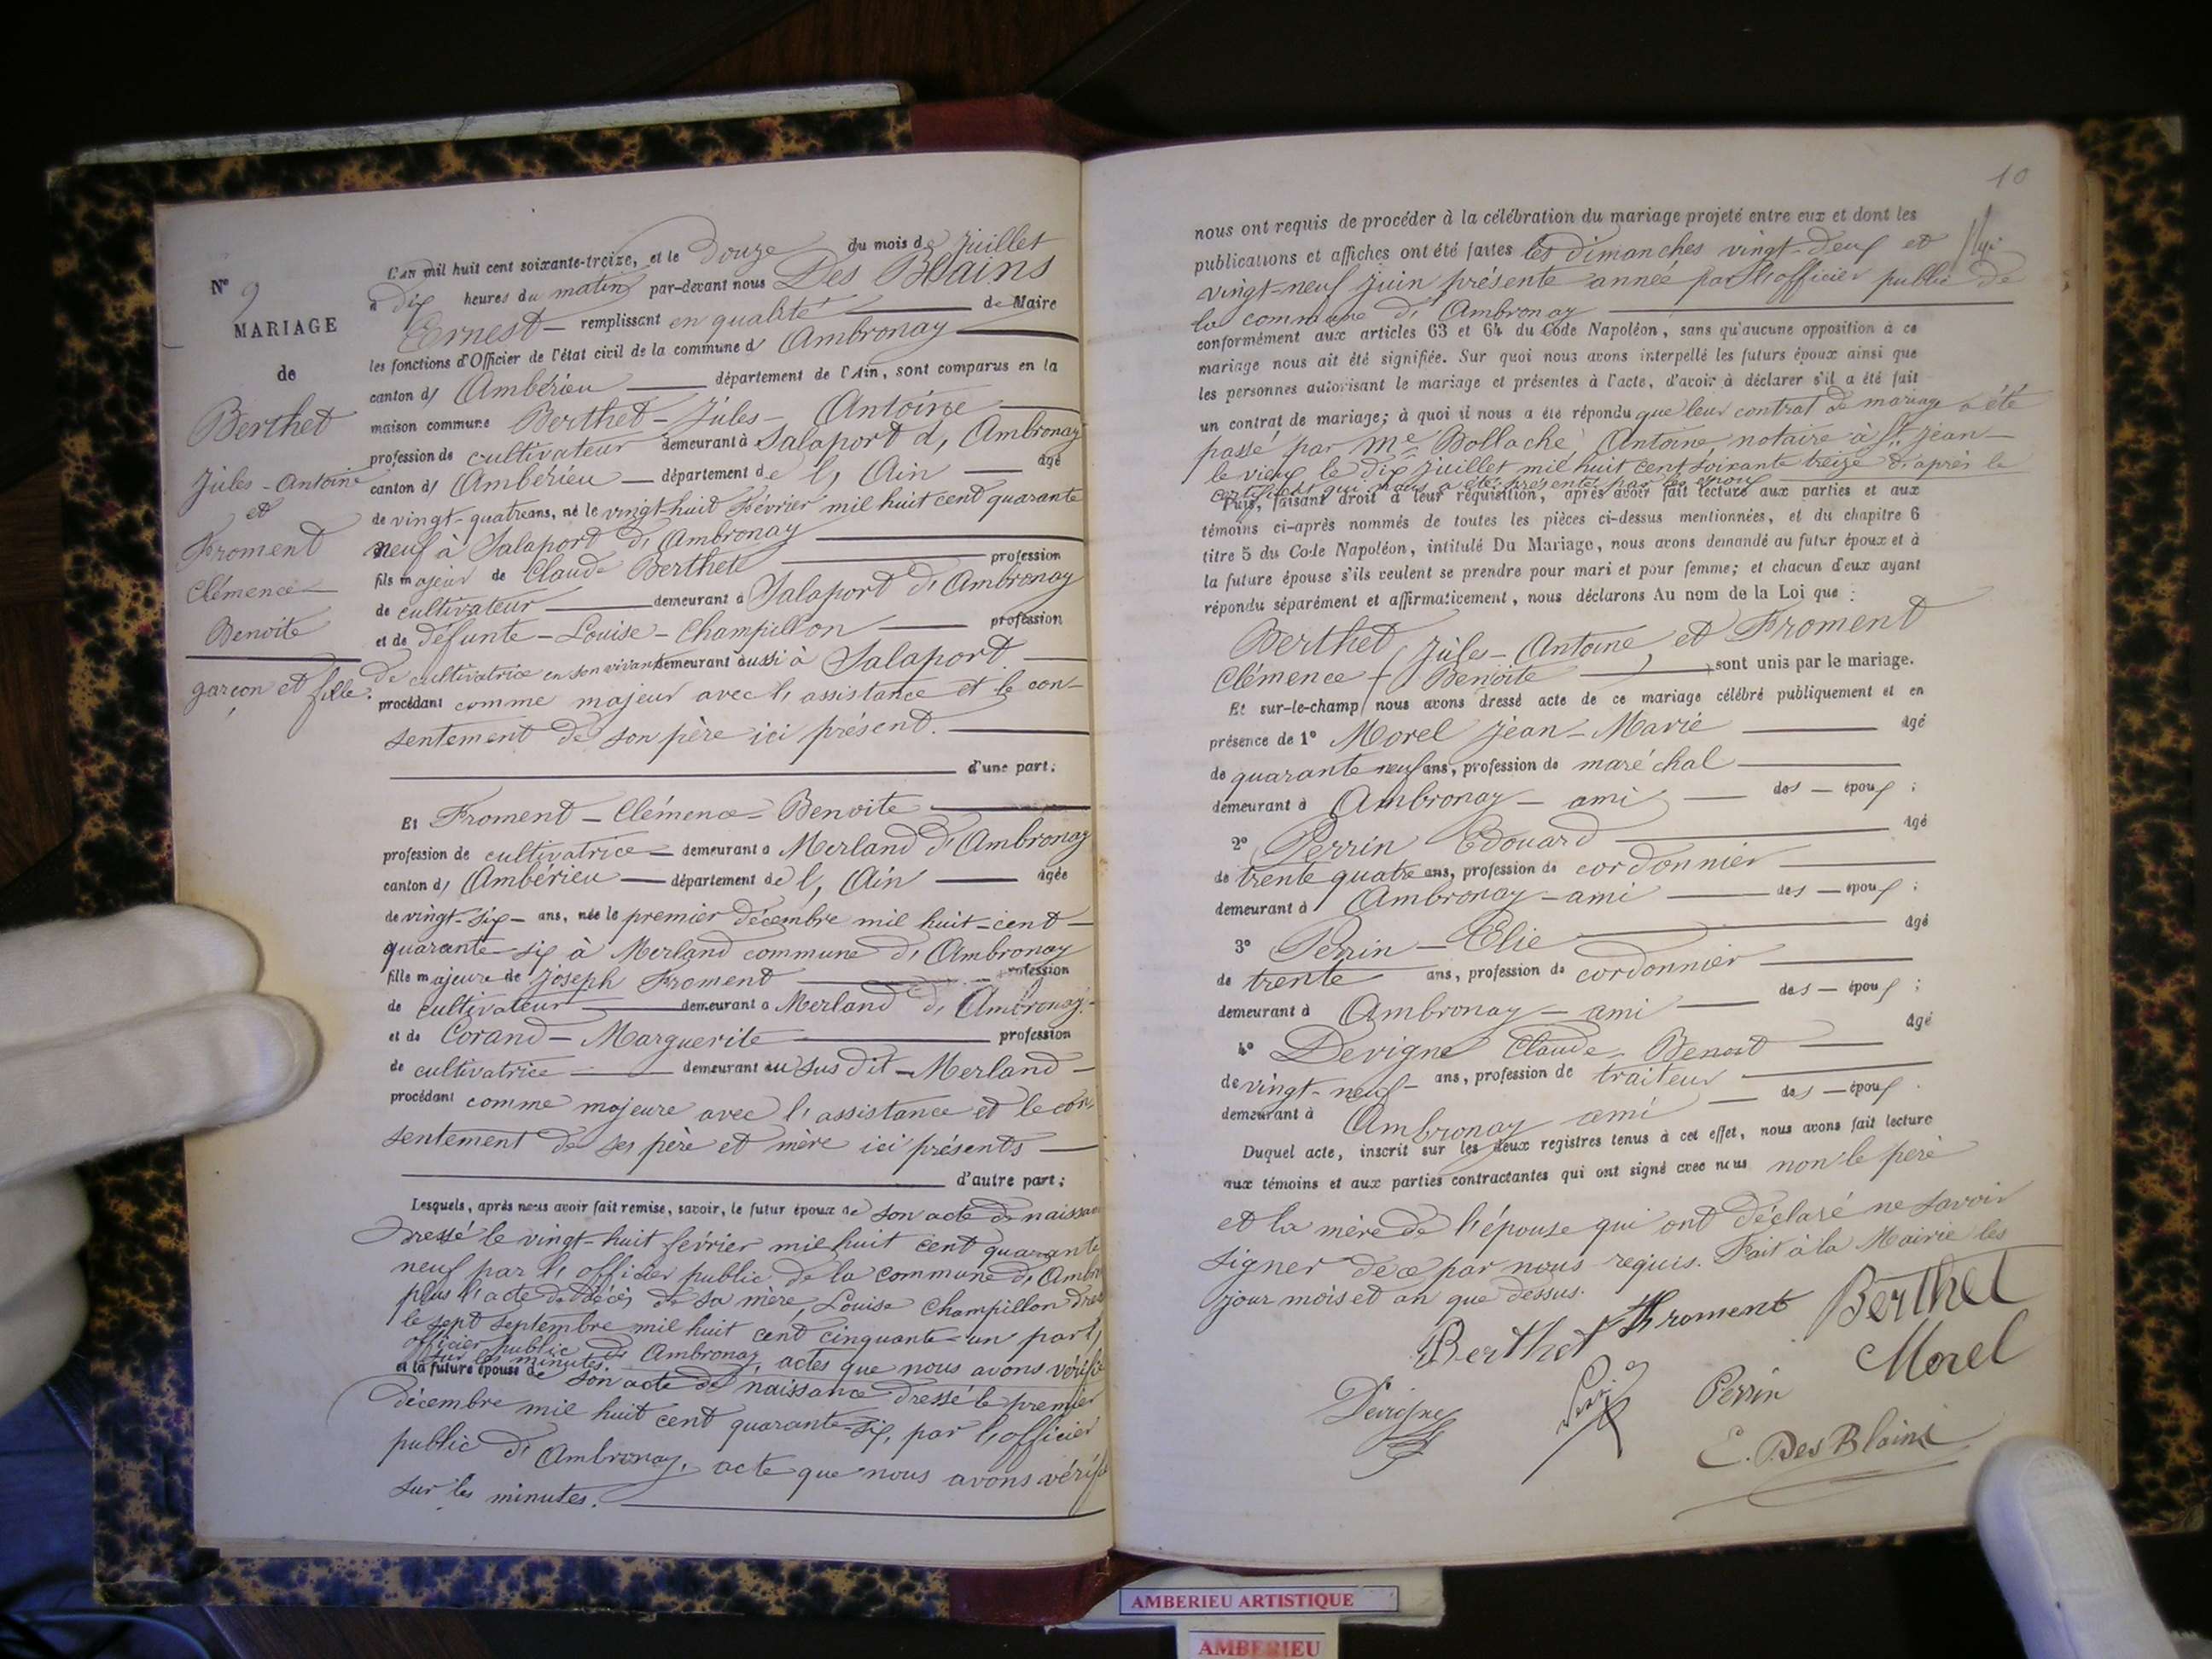 N° 9
MARIAGE
de
Berthet
Jules - Antoine
et
Froment
Clémence
Benoite
garçon et fille.
L'an mil huit cent soixante-treize, et le douze du mois de Juillet
à dix heures du matin par-devant nous Des Blains
Ernest - remplissant en qualité de Maire
les fonctions d'Officier de l'état civil de la commune d' Ambronay
canton d' Ambérieu département de l'Ain, sont comparus en la
maison commune Berthet - Jules - Antoine
profession de cultivateur demeurant à Salaport d' Ambronay
canton d' Ambérieu département de l' Ain âgé
de vingt-quatre ans, né le vingt-huit Février mil huit cent quarante
neuf à Salaport d' Ambronay
fils majeur de Claude Berthet profession
de cultivateur demeurant à Salaport d' Ambronay
et de défunte - Louise - Champillon profession
de cultivatrice en son vivant demeurant aussi à Salaport.
procédant comme majeur avec l' assistance et le con-
sentement de son père ici présent.
d'une part;
Et Froment - Clémence - Benoite
profession de cultivatrice demeurant à Merland d' Ambronay
canton d' Ambérieu département de l' Ain âgée
de vingt-six - ans, née le premier décembre mil huit-cent
quarante-six à Merland commune d' Ambronay
fille majeure de Joseph Froment profession
de cultivateur demeurant à Merland d' Ambronay
et de Corand - Marguerite profession
de cultivatrice demeurant au susdit - Merland
procédant comme majeure avec l' assistance et le con-
sentement de ses père et mère ici présents
d'autre part;
Lesquels, après nous avoir fait remise, savoir, le futur époux de son acte de naissance
dressé le vingt-huit février mil huit cent quarante
neuf par l' officier public de la commune d'
plus l' acte de décès de sa mère, Louise Champillon
le sept septembre mil huit cent cinquante-un par l'
officier public d' Ambronay, actes que nous avons vérifié
sur les minutes.
et la future épouse de son acte de naissance dressé le premier
décembre mil huit cent quarante-six, par l' officier
public d' Ambronay, acte que nous avons vérifié
sur les minutes.
10
nous ont requis de procéder à la célébration du mariage projeté entre eux et dont les
publications et affiches ont été faites les dimanches vingt-deux et
vingt-neuf juin présente année par l'officier public de
la commune d' Ambronay
conformément aux articles 63 et 64 du Code Napoléon, sans qu'aucune opposition à ce
mariage nous ait été signifiée. Sur quoi nous avons interpellé les futurs époux ainsi que
les personnes autorisant le mariage et présentes à l'acte, d'avoir à déclarer s'il a été fait
un contrat de mariage; à quoi il nous a été répondu que leur contrat de mariage a été
passé par Me Bollaché Antoine notaire à St Jean-
le vieux le dix juillet mil huit cent soixante treize d'après le
certificat qui nous a été présenté par les époux
Puis, faisant droit à leur réquisition, après avoir fait lecture aux parties et aux
témoins ci-après nommés de toutes les pièces ci-dessus mentionnées, et du chapitre 6
titre 5 du Code Napoléon, intitulé Du Mariage, nous avons demandé au futur époux et à
la future épouse s'ils veulent se prendre pour mari et pour femme; et chacun d'eux ayant
répondu séparément et affirmativement, nous déclarons Au nom de la Loi que :
Berthet Jules - Antoine et Froment
Clémence Benoite sont unis par le mariage.
Et sur-le-champ nous avons dressé acte de ce mariage célébré publiquement et en
présence de 1° Morel Jean - Marie âgé
de quarante neuf ans, profession de maréchal
demeurant à Ambronay - ami des époux ;
2° Perrin Edouard âgé
de trente quatre ans, profession de cordonnier
demeurant à Ambronay - ami des époux ;
3° Perrin - Elie âgé
de trente ans, profession de cordonnier
demeurant à Ambronay - ami des époux ;
4° Devigne Claude - Benoit âgé
de vingt-neuf - ans, profession de traiteur
demeurant à Ambronay ami des époux.
Duquel acte, inscrit sur les deux registres tenus à cet effet, nous avons fait lecture
aux témoins et aux parties contractantes qui ont signé avec nous non le père
et la mère de l'épouse qui ont déclaré ne savoir
signer de ce par nous requis. Fait à la Mairie les
jour mois et an que dessus.
Berthet Froment Berthet
Morel
Devigne Perrin
E. Des Blains
AMBERIEU ARTISTIQUE
AMBERIEU